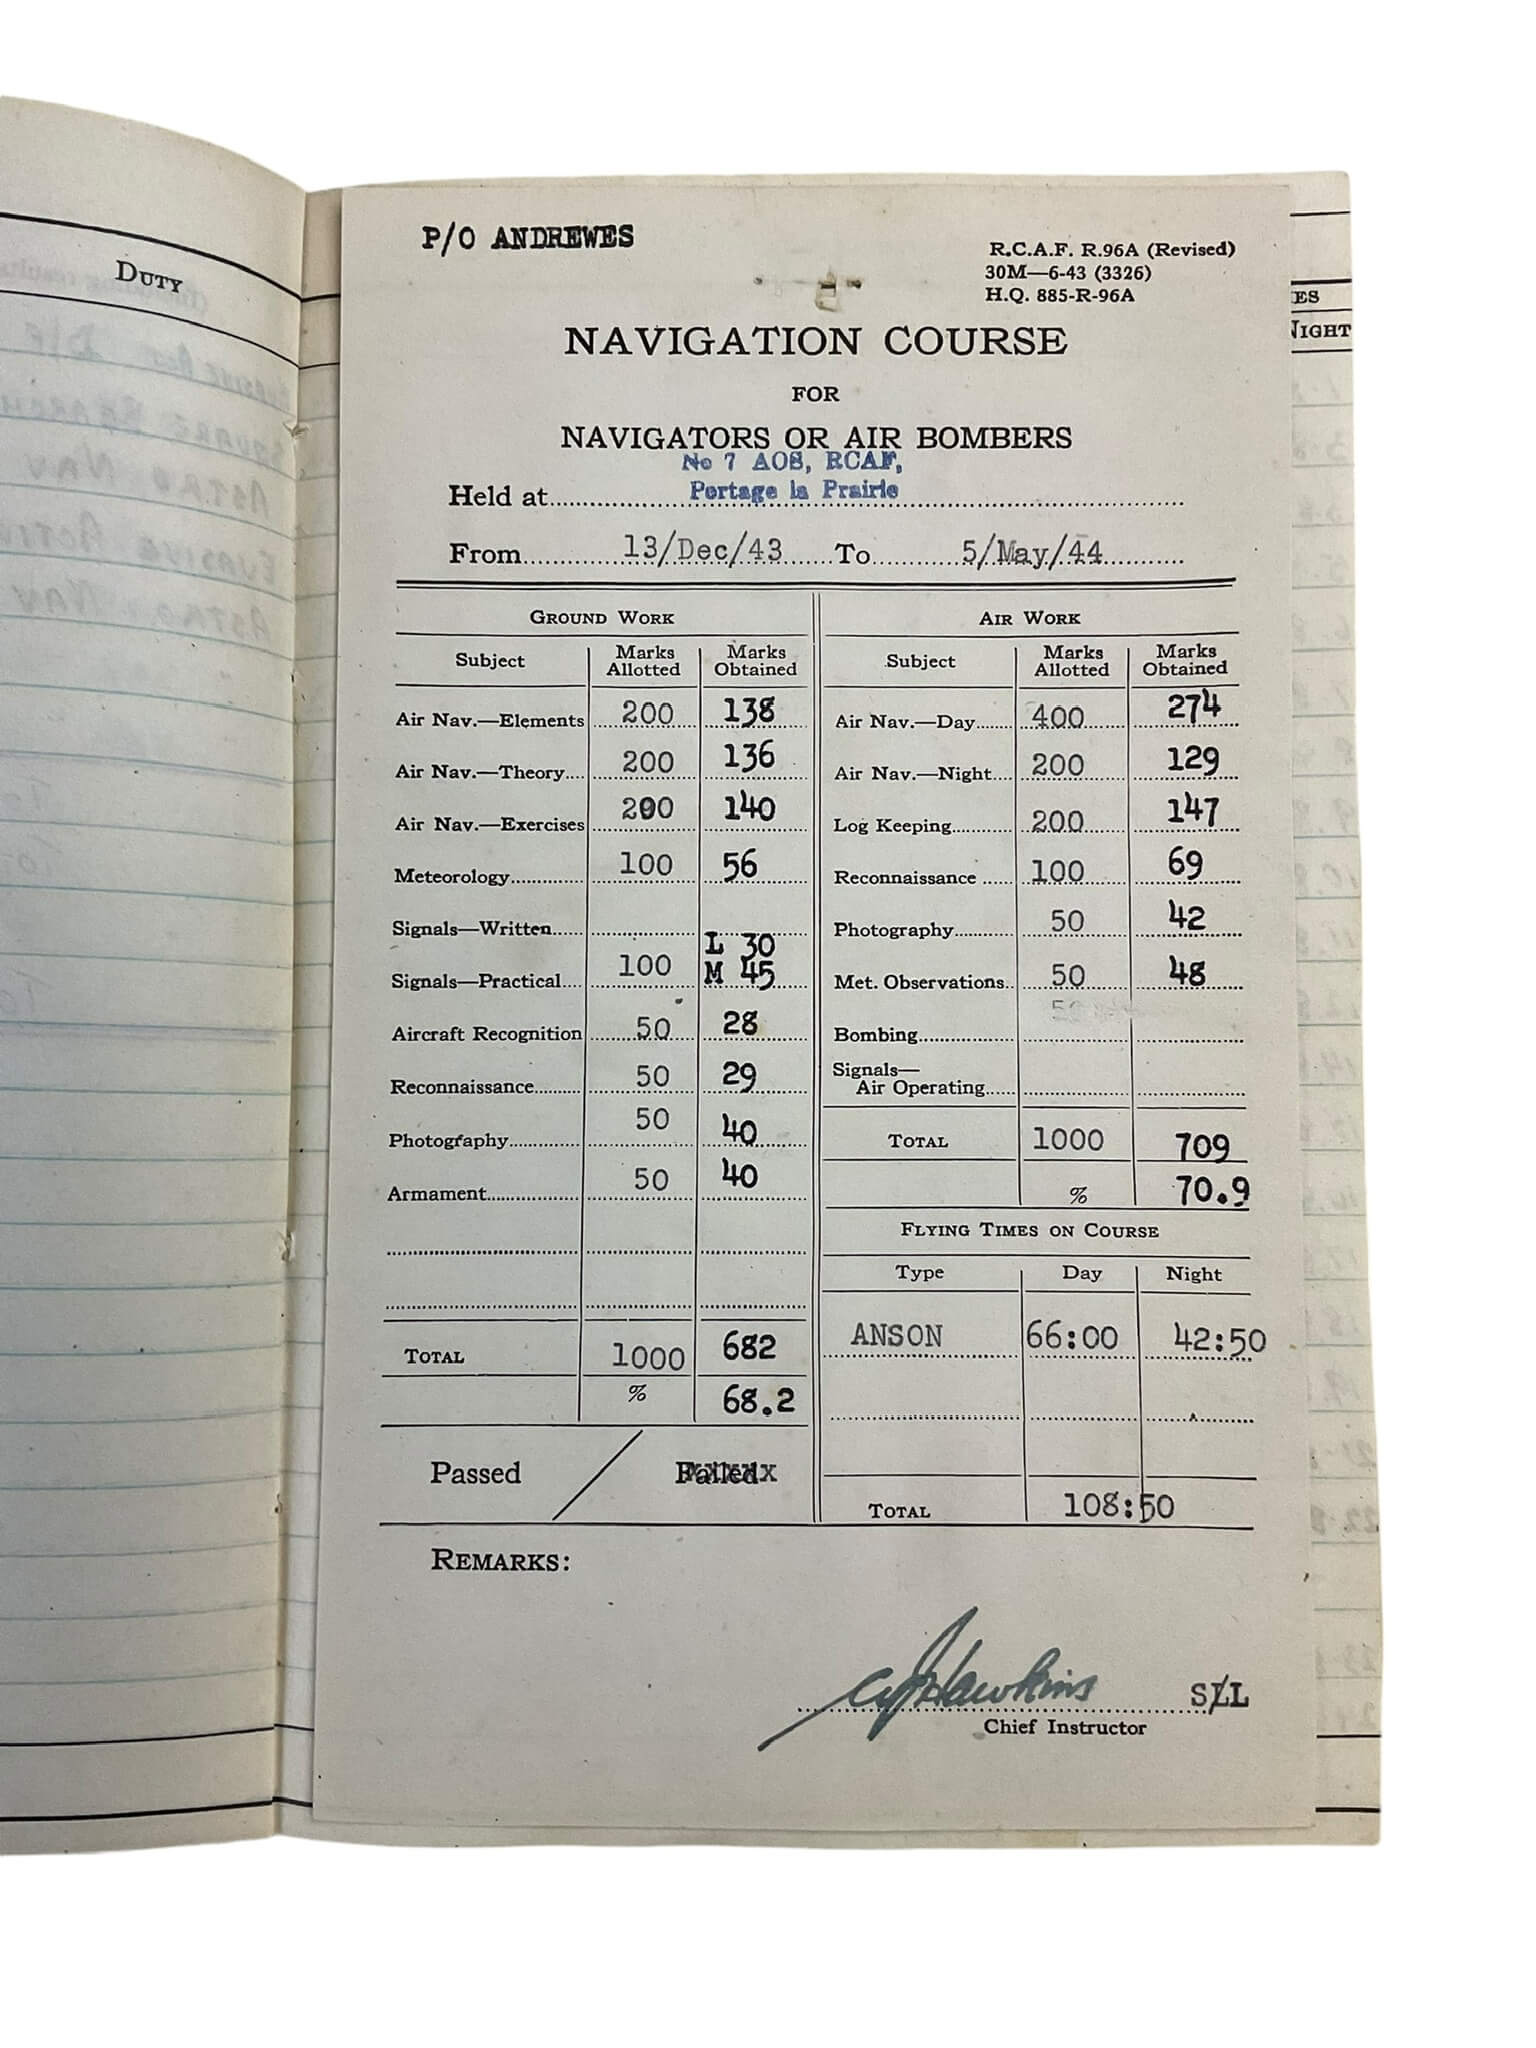 DUTY
P/O ANDREWES
R.C.A.F. R.96A (Revised)
30M—6-43 (3326)
H.Q. 885-R-96A
NAVIGATION COURSE
FOR
NAVIGATORS OR AIR BOMBERS
No 7 AOS, RCAF,
Held at Portage la Prairie
From 13/Dec/43 To 5/May/44
GROUND WORK
Subject Marks Allotted Marks Obtained
Air Nav.—Elements 200 138
Air Nav.—Theory 200 136
Air Nav.—Exercises 200 140
Meteorology 100 56
Signals—Written
L 30
Signals—Practical 100 M 45
Aircraft Recognition 50 28
Reconnaissance 50 29
Photography 50 40
Armament 50 40
TOTAL 1000 682
% 68.2
Passed / Failed
AIR WORK
Subject Marks Allotted Marks Obtained
Air Nav.—Day 400 274
Air Nav.—Night 200 129
Log Keeping 200 147
Reconnaissance 100 69
Photography 50 42
Met. Observations 50 48
Bombing
Signals—
Air Operating
TOTAL 1000 709
% 70.9
FLYING TIMES ON COURSE
Type Day Night
ANSON 66:00 42:50
TOTAL 108:50
REMARKS:
Hawkins S/L
Chief Instructor
NIGHT